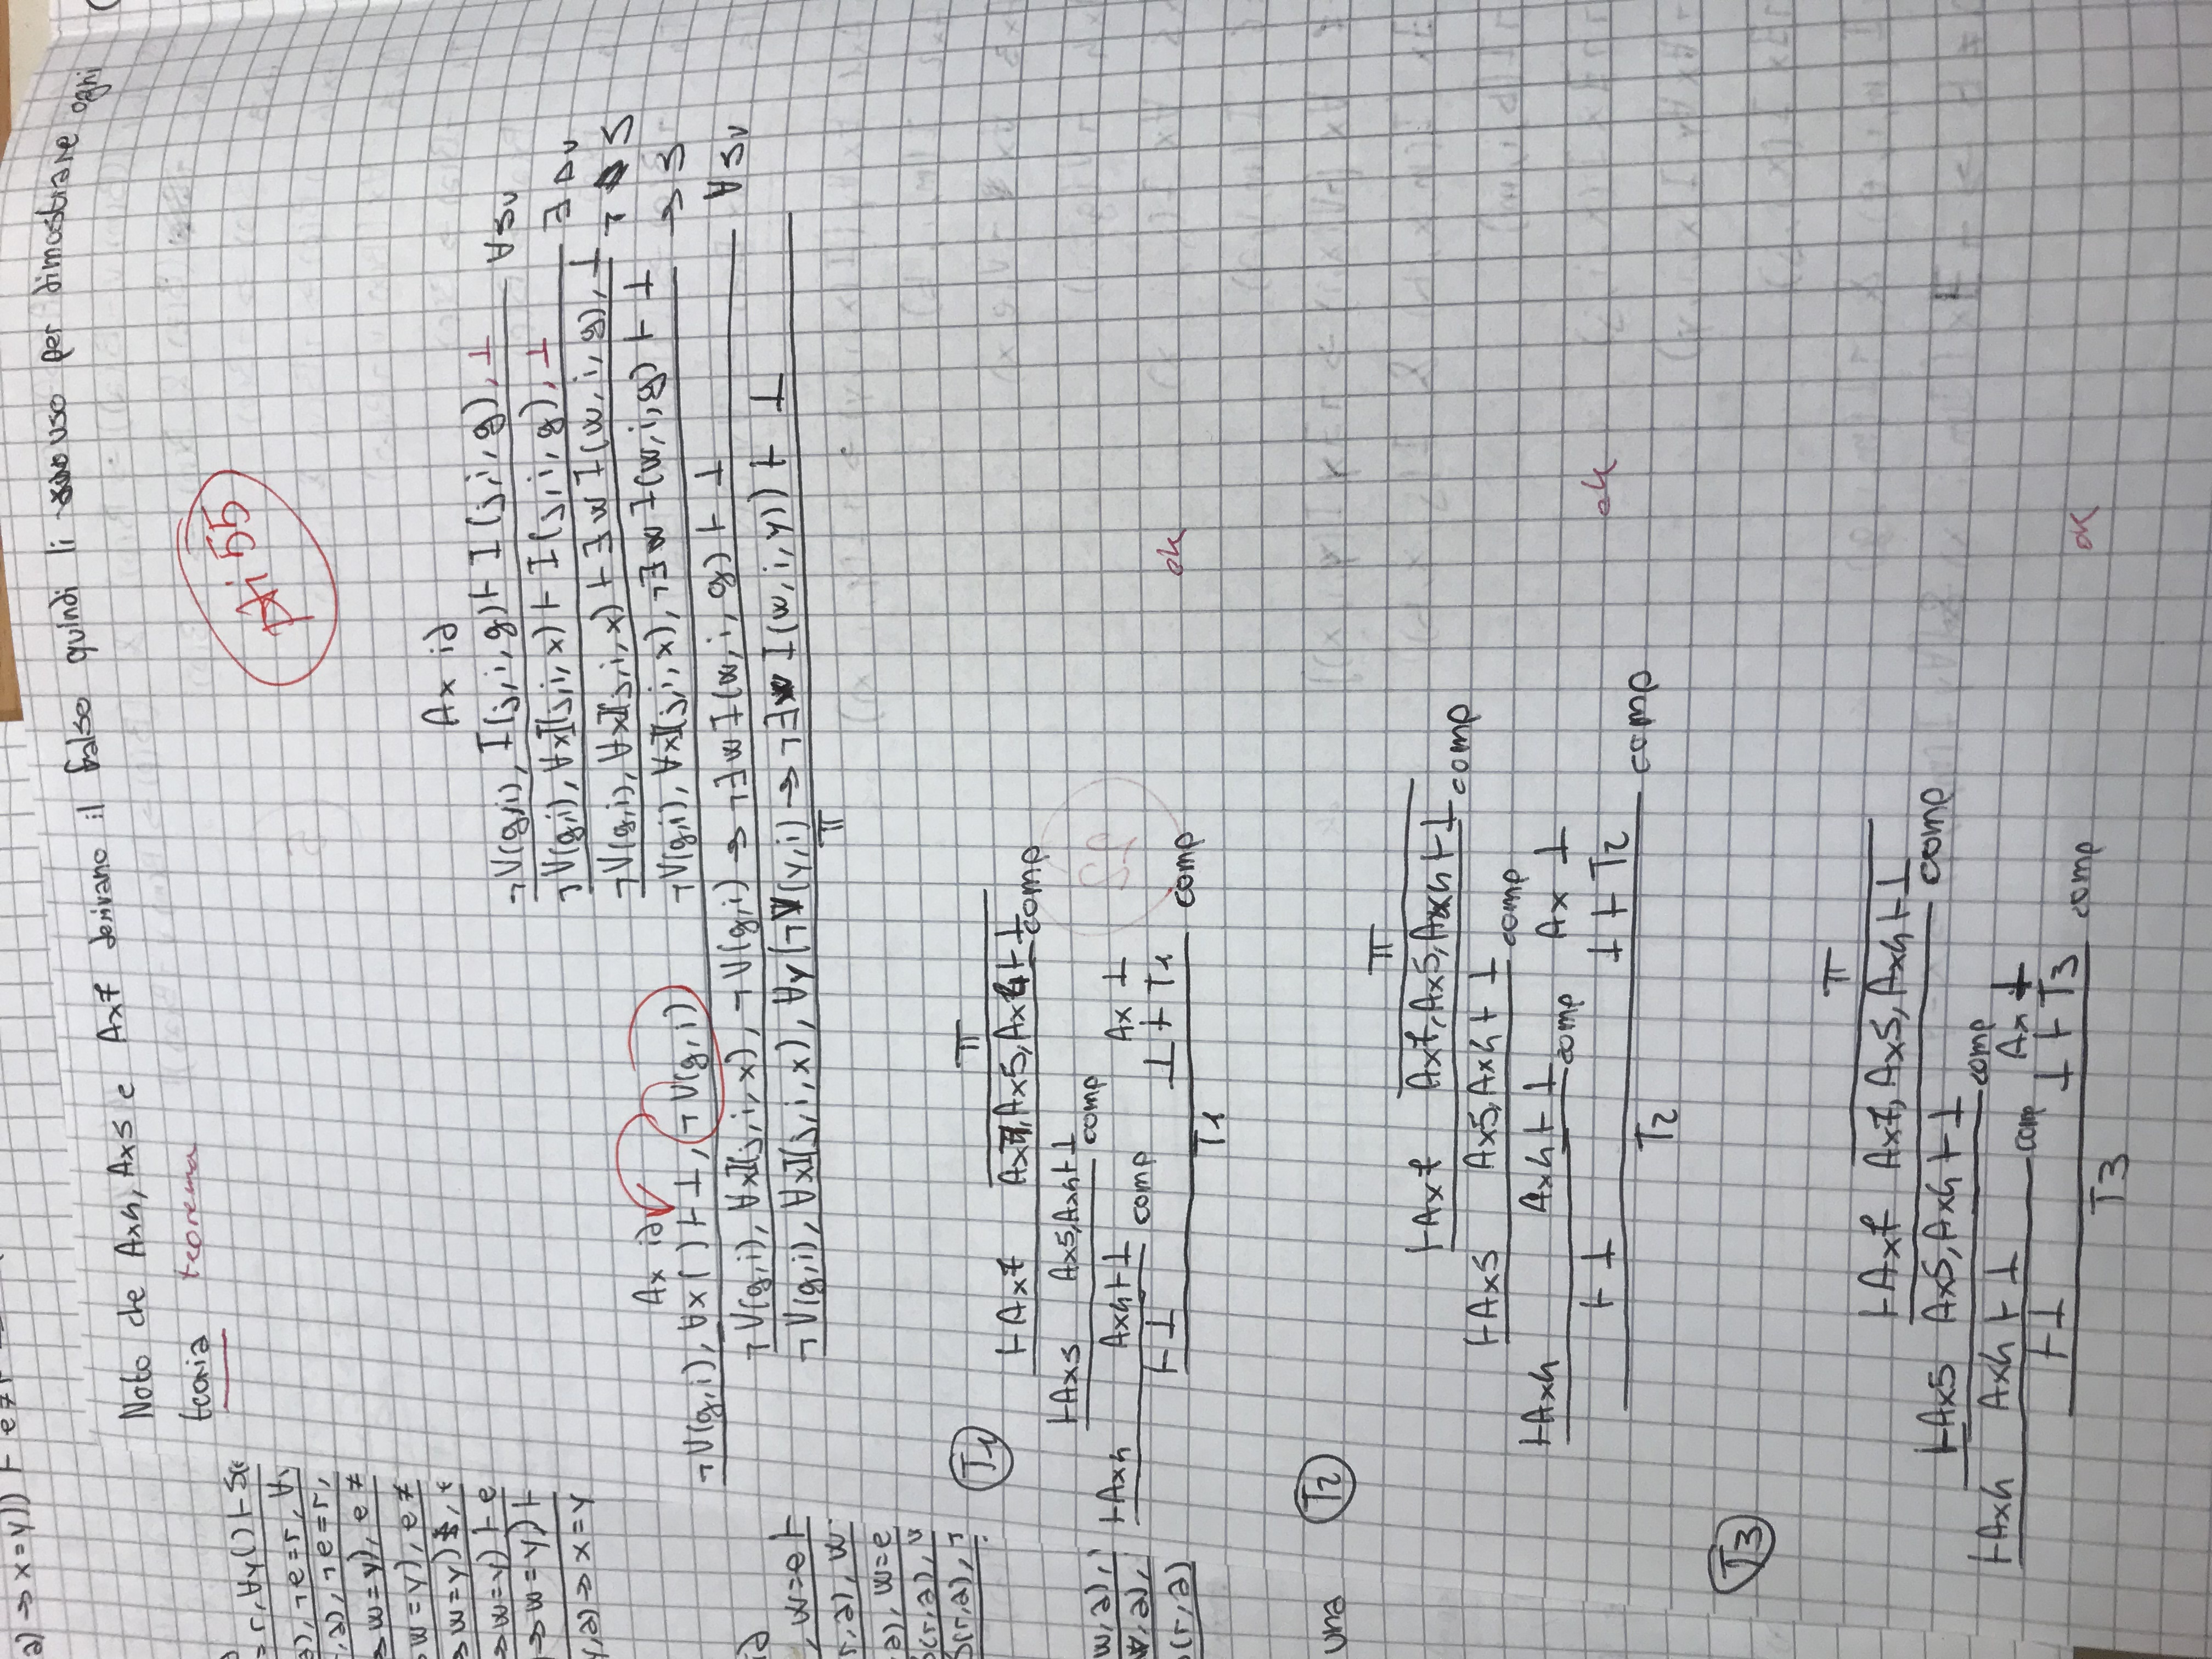 a) → x=y)) ⊢ e≠r
Noto che Ax4, Ax5 e Ax7 derivano il falso quindi li uso per dimostrare ogni
teoria teorema
pti 55
= r, ∀y() ⊢ S(e
a), ¬e=r, ∀y
r,a), ¬e=r,
→ w=y), e≠
→ w=y), e≠
→ w=y)
→ w=y) ⊢ e
→ w=y) ⊢
y,a) → x=y
id
, w=e ⊢
r,a), w
a), w=e
S(r,a),
S(r,a),
w,a),
,a),
(r,a)
una
Ax id
¬V(g,i), I(j,i,g) ⊢ I(j,i,g), ⊥
∀-S v
¬V(g,i), ∀xI(j,i,x) ⊢ I(j,i,g), ⊥
∃-D v
¬V(g,i), ∀xI(j,i,x) ⊢ ∃w I(w,i,g), ⊥
¬-S
Ax id
¬V(g,i), ∀x( ) ⊢ ⊥, ¬V(g,i) ¬V(g,i), ∀xI(j,i,x), ¬∃w I(w,i,g) ⊢ ⊥
→-S
¬V(g,i), ∀xI(j,i,x), ¬V(g,i) → ¬∃w I(w,i,g) ⊢ ⊥
∀-S v
¬V(g,i), ∀xI(j,i,x), ∀y(¬V(y,i) → ¬∃w I(w,i,y)) ⊢ ⊥
π
T1
π
⊢Ax7 Ax7, Ax5, Ax4 ⊢ ⊥ comp
⊢Ax5 Ax5, Ax4 ⊢ ⊥ comp
⊢Ax4 Ax4 ⊢ ⊥ comp Ax ⊥
⊢ ⊥ ⊥ ⊢ T1 comp ok
T1
T2
π
⊢Ax7 Ax7, Ax5, Ax4 ⊢ ⊥ comp
⊢Ax5 Ax5, Ax4 ⊢ ⊥ comp
⊢Ax4 Ax4 ⊢ ⊥ comp Ax ⊥
⊢ ⊥ ⊥ ⊢ T2 comp ok
T2
T3
π
⊢Ax7 Ax7, Ax5, Ax4 ⊢ ⊥ comp
⊢Ax5 Ax5, Ax4 ⊢ ⊥ comp
⊢Ax4 Ax4 ⊢ ⊥ comp Ax ⊥
⊢⊥ ⊥ ⊢ T3 comp ok
T3